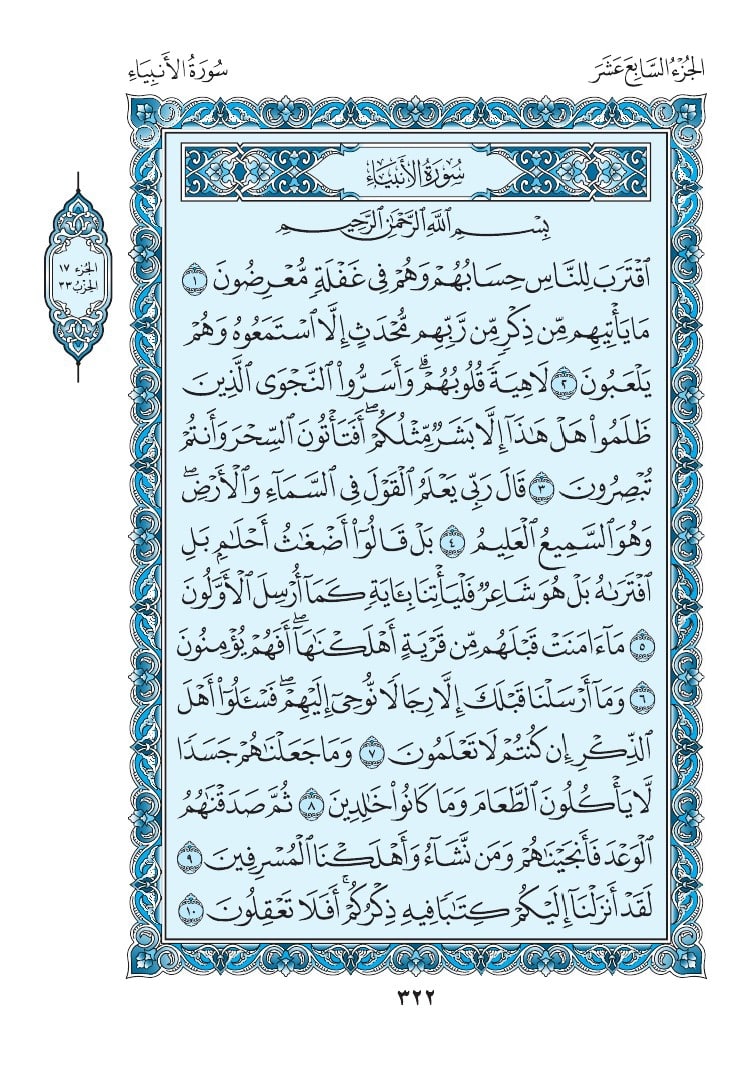 الجُزْءُ السَّابِعَ عَشَرَ
سُورَةُ الأَنبِيَاءِ
سُورَةُ الأَنبِيَاءِ
الجُزء ١٧
الحِزْبُ ٣٣
بِسْمِ ٱللَّهِ ٱلرَّحْمَٰنِ ٱلرَّحِيمِ
ٱقْتَرَبَ لِلنَّاسِ حِسَابُهُمْ وَهُمْ فِى غَفْلَةٍ مُّعْرِضُونَ ١
مَا يَأْتِيهِم مِّن ذِكْرٍ مِّن رَّبِّهِم مُّحْدَثٍ إِلَّا ٱسْتَمَعُوهُ وَهُمْ
يَلْعَبُونَ ٢ لَاهِيَةً قُلُوبُهُمْ ۗ وَأَسَرُّوا۟ ٱلنَّجْوَى ٱلَّذِينَ
ظَلَمُوا۟ هَلْ هَٰذَآ إِلَّا بَشَرٌ مِّثْلُكُمْ ۖ أَفَتَأْتُونَ ٱلسِّحْرَ وَأَنتُمْ
تُبْصِرُونَ ٣ قَالَ رَبِّى يَعْلَمُ ٱلْقَوْلَ فِى ٱلسَّمَآءِ وَٱلْأَرْضِ ۖ
وَهُوَ ٱلسَّمِيعُ ٱلْعَلِيمُ ٤ بَلْ قَالُوٓا۟ أَضْغَٰثُ أَحْلَٰمٍۭ بَلِ
ٱفْتَرَىٰهُ بَلْ هُوَ شَاعِرٌ فَلْيَأْتِنَا بِـَٔايَةٍ كَمَآ أُرْسِلَ ٱلْأَوَّلُونَ
٥ مَآ ءَامَنَتْ قَبْلَهُم مِّن قَرْيَةٍ أَهْلَكْنَٰهَآ ۖ أَفَهُمْ يُؤْمِنُونَ
٦ وَمَآ أَرْسَلْنَا قَبْلَكَ إِلَّا رِجَالًا نُّوحِىٓ إِلَيْهِمْ ۖ فَسْـَٔلُوٓا۟ أَهْلَ
ٱلذِّكْرِ إِن كُنتُمْ لَا تَعْلَمُونَ ٧ وَمَا جَعَلْنَٰهُمْ جَسَدًا
لَّا يَأْكُلُونَ ٱلطَّعَامَ وَمَا كَانُوا۟ خَٰلِدِينَ ٨ ثُمَّ صَدَقْنَٰهُمُ
ٱلْوَعْدَ فَأَنجَيْنَٰهُمْ وَمَن نَّشَآءُ وَأَهْلَكْنَا ٱلْمُسْرِفِينَ ٩
لَقَدْ أَنزَلْنَآ إِلَيْكُمْ كِتَٰبًا فِيهِ ذِكْرُكُمْ ۖ أَفَلَا تَعْقِلُونَ ١٠
٣٢٢